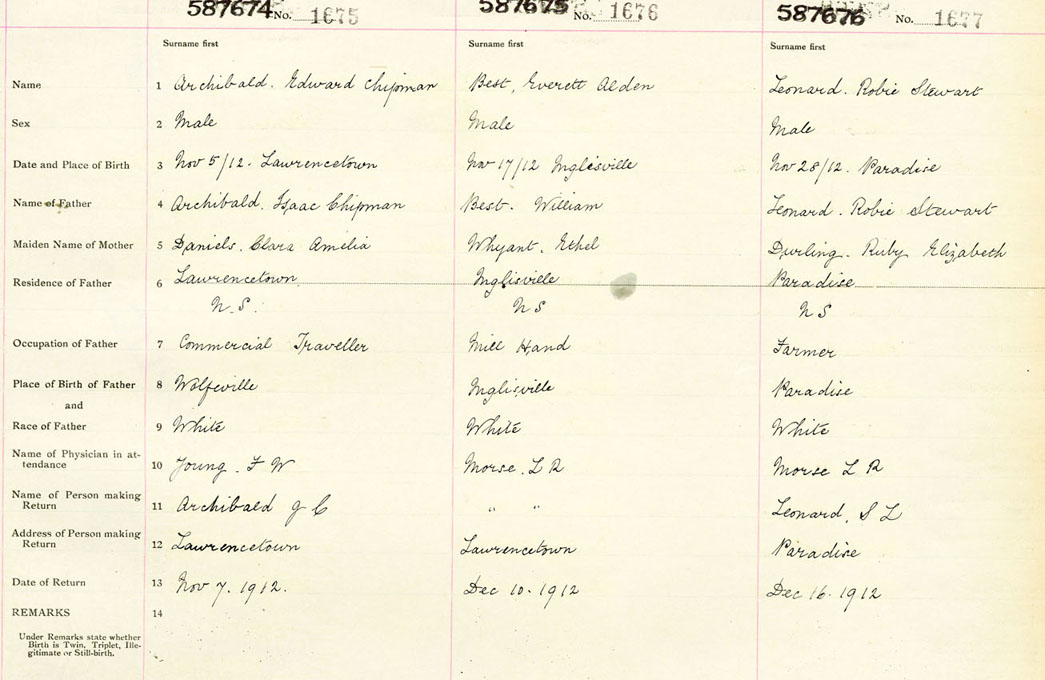 587674 No. 1675 587675 No. 1676 587676 No. 1677
Surname first Surname first Surname first
Name 1 Archibald. Edward Chipman Best, Everett Alden Leonard. Robie Stewart
Sex 2 Male Male Male
Date and Place of Birth 3 Nov 5/12. Lawrencetown Nov 17/12 Inglisville Nov 28/12. Paradise
Name of Father 4 Archibald. Isaac Chipman Best. William Leonard. Robie Stewart
Maiden Name of Mother 5 Daniels. Clara Amelia Whyant. Ethel Durling. Ruby Elizabeth
Residence of Father 6 Lawrencetown Inglisville Paradise
N.S. N S N S
Occupation of Father 7 Commercial Traveller Mill Hand Farmer
Place of Birth of Father 8 Wolfeville Inglisville Paradise
and
Race of Father 9 White White White
Name of Physician in at-
tendance 10 Young. F W Morse. L R Morse L R
Name of Person making
Return 11 Archibald J C " " Leonard, S L
Address of Person making
Return 12 Lawrencetown Lawrencetown Paradise
Date of Return 13 Nov 7. 1912. Dec 10. 1912 Dec 16. 1912
REMARKS 14
Under Remarks state whether
Birth is Twin, Triplet, Ille-
gitimate or Still-birth.